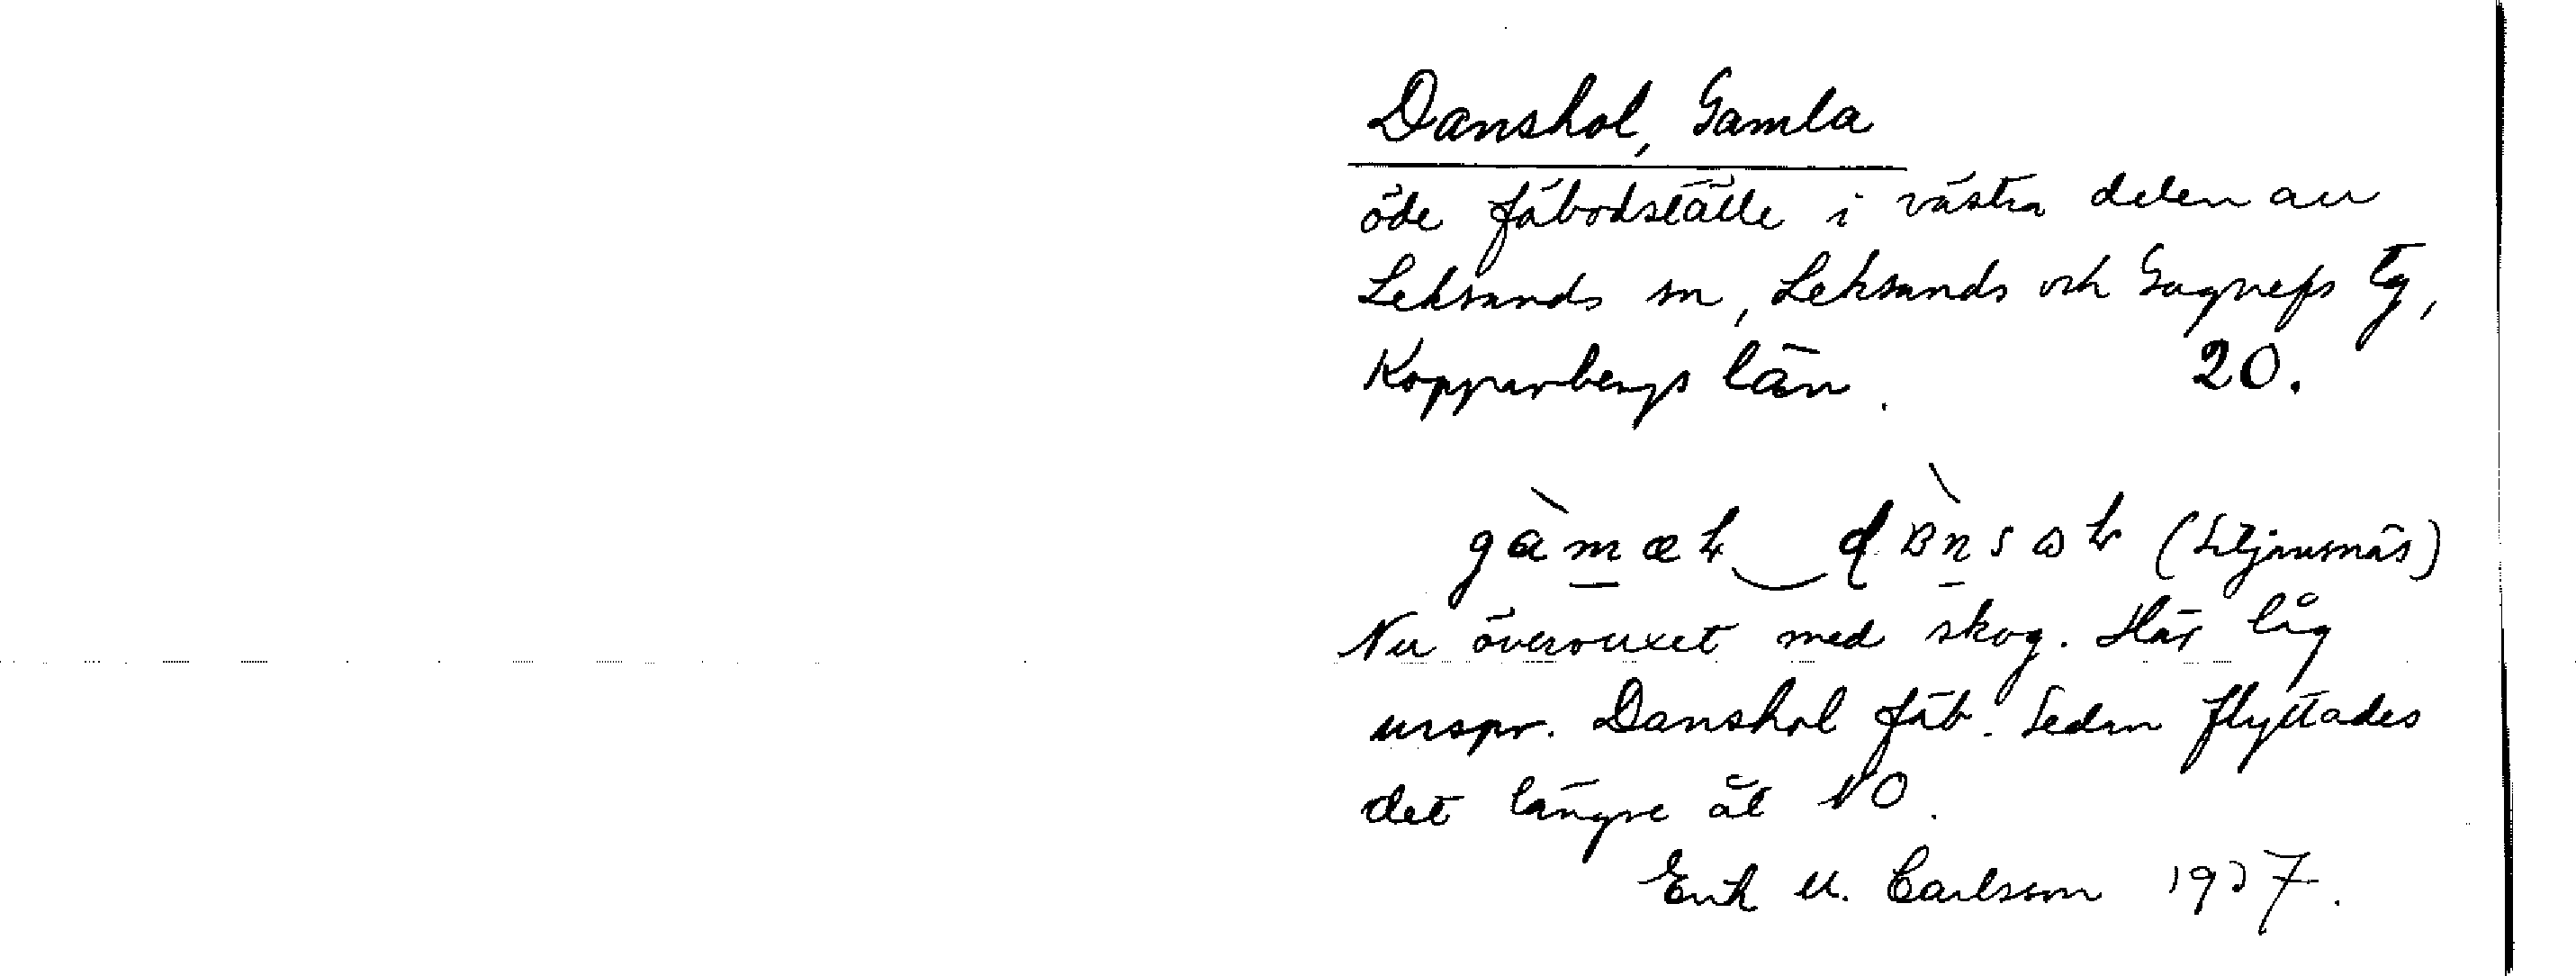 Danshol, Gamla
öde fäbodställe i västra delen av
Leksands sn, Leksands och Gagnefs tg,
Kopparbergs län. 20.
(Siljansnäs)
Nu övervuxet med skog. Här låg
urspr. Danshol fäb. Sedan flyttades
det längre åt NO.
Erik M. Carlsson 1937.